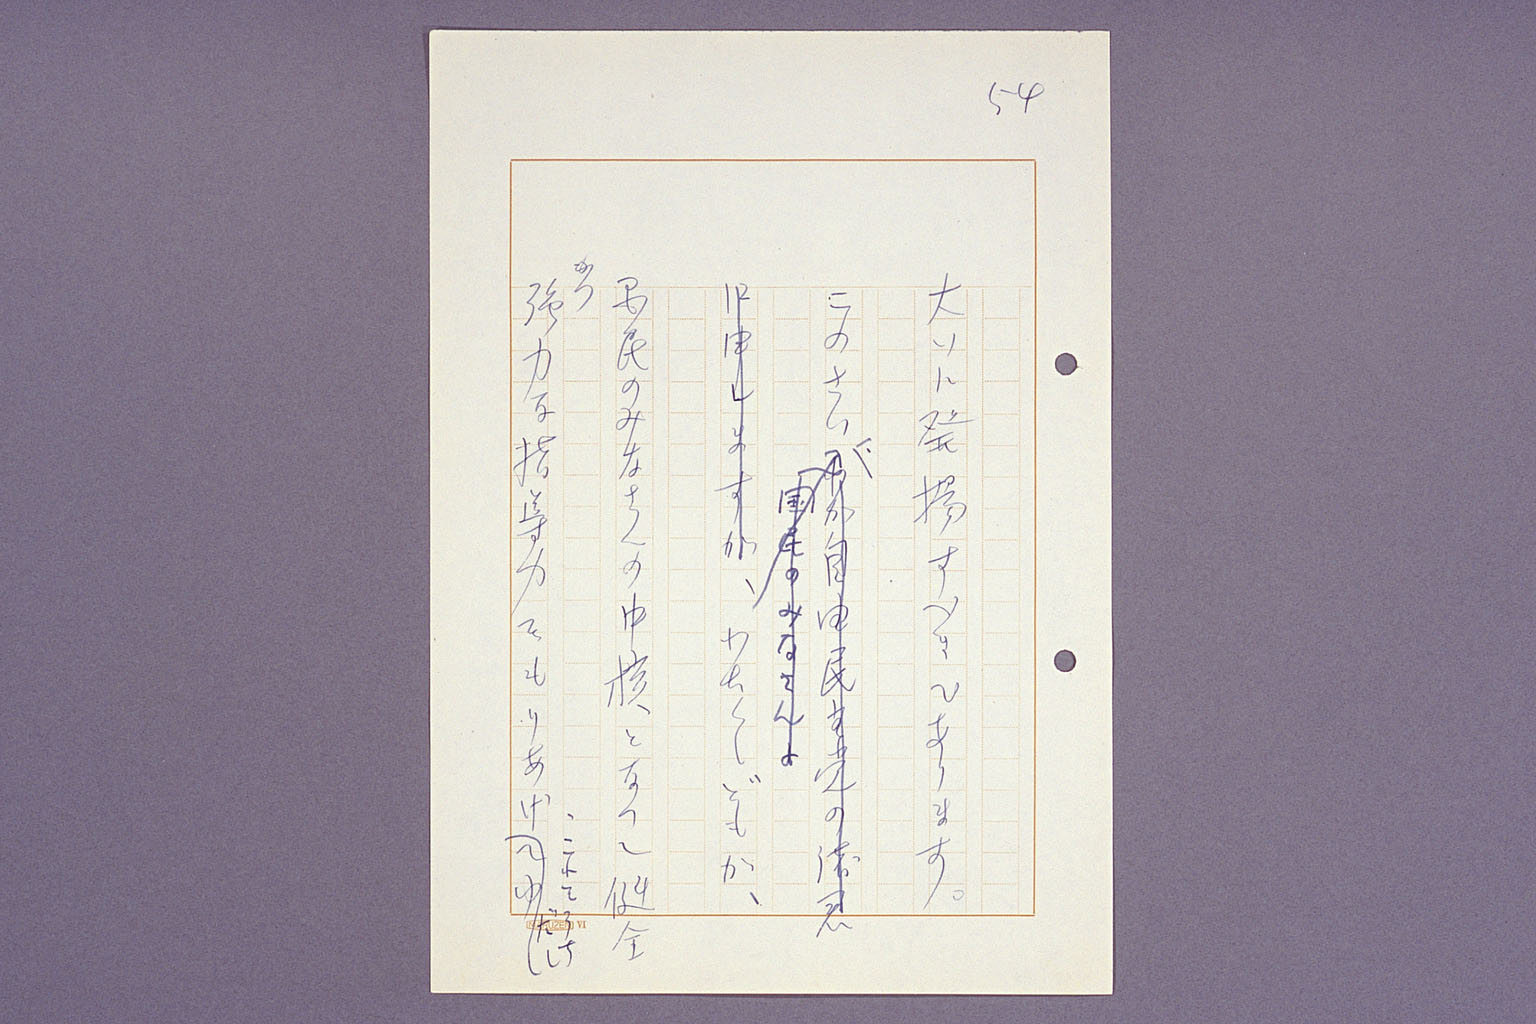 54
大いに発揚すべきであります。
このさいが自由民主党の諸君
国民のみなさんよ
に申しますが、わたくしどもが、
国民のみなさんの中核となって健全
かつ
強力な指導力をもりあげ
、これを
MARUZEN VI